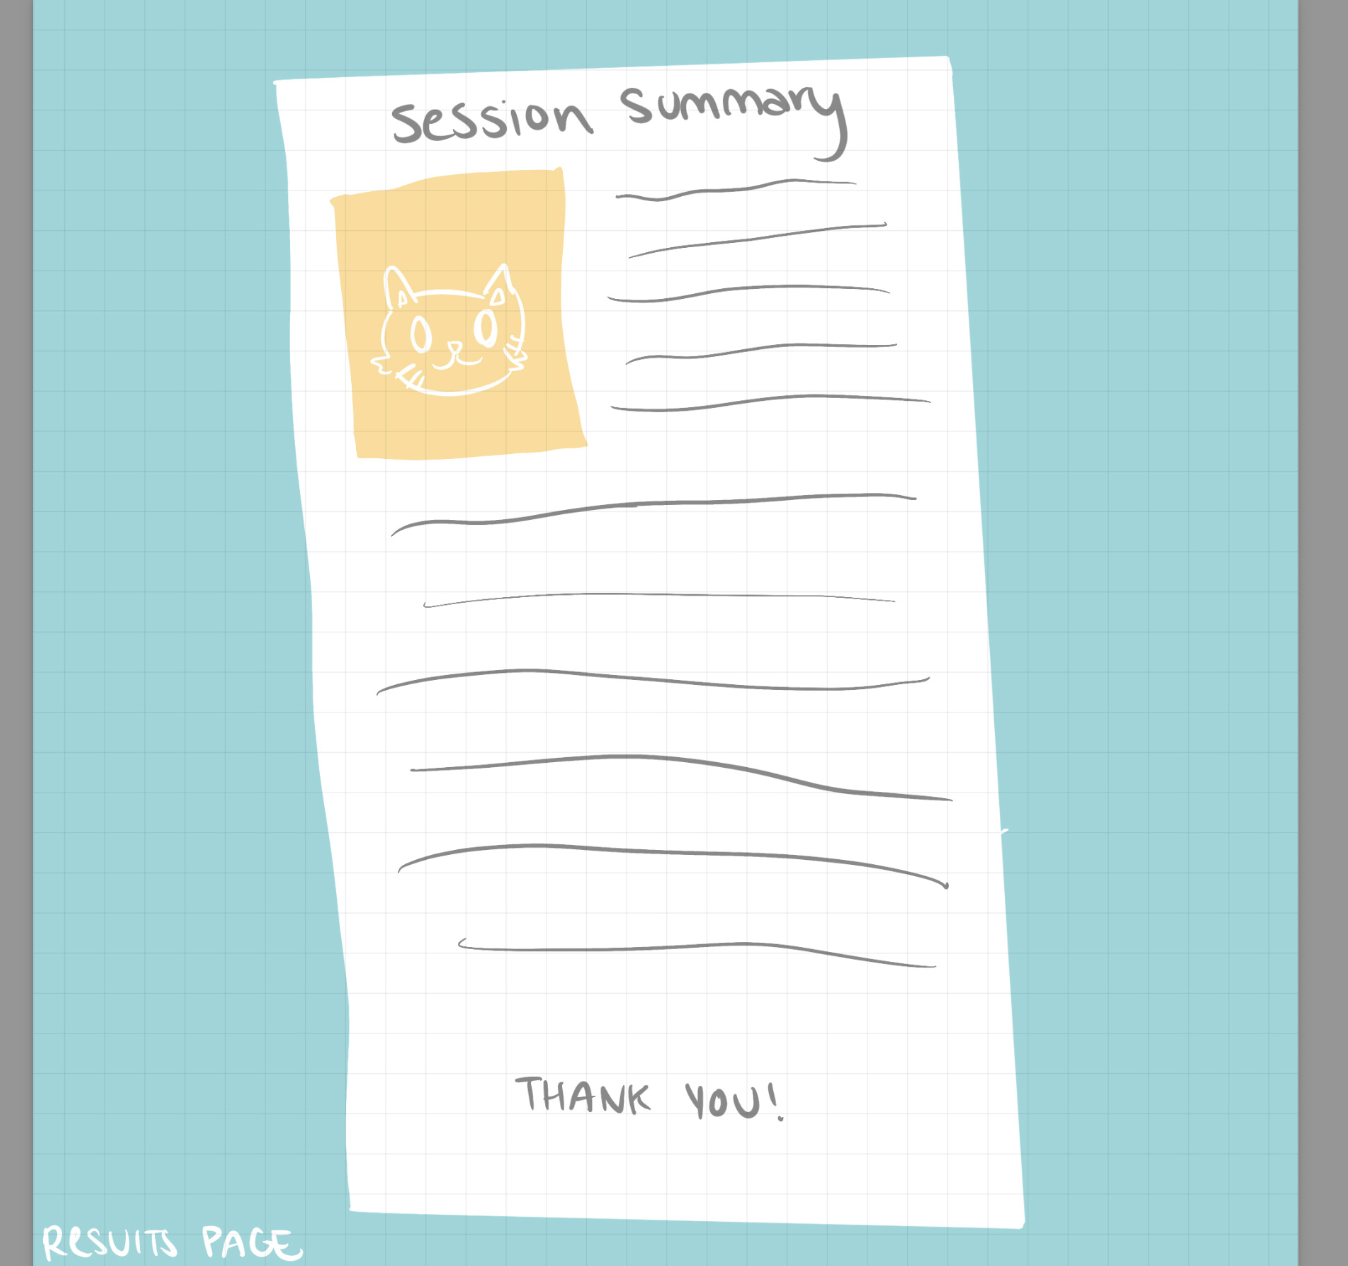 Session Summary
THANK YOU!
RESUITS PAGE